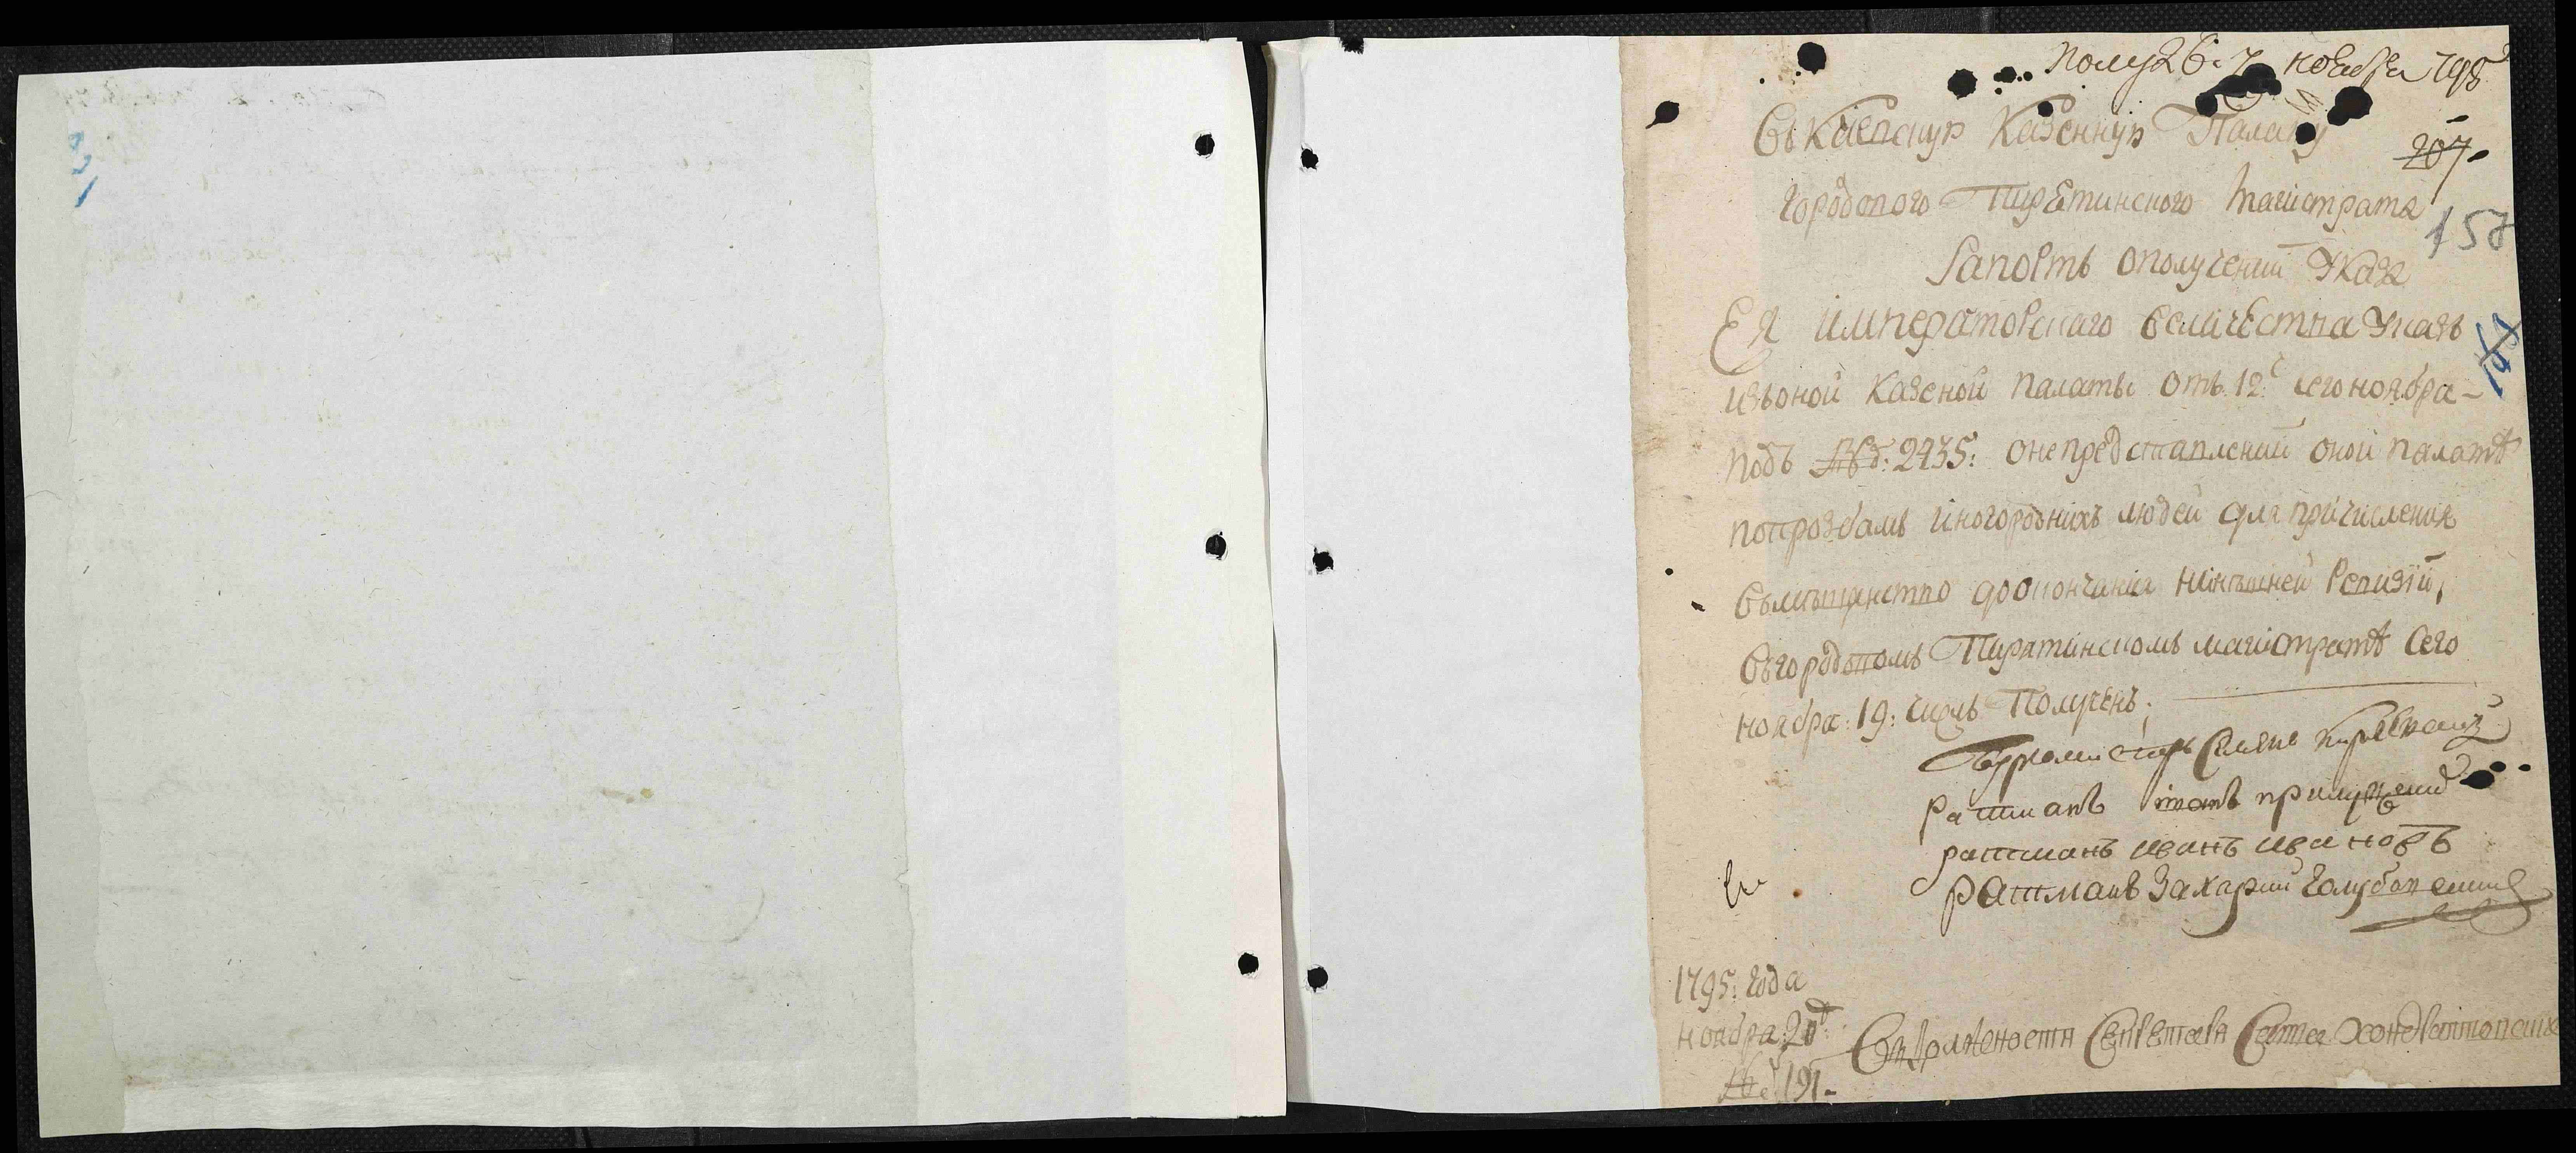 Полу: 26: ноября 795
Въ Киевскую Казенную Палату
207.
Городового Пирятинского Магистрата
157
Рапортъ ополучении Указа
Ея Императорскаго величества Указъ
изъоной Казеной палаты отъ 12: сего ноября –
подъ №: 2435: онепредставлении оной палатѣ
попрозбамъ иногородныхъ людей для причисления
въмещанство доокончания нинешней Ревизии,
Въгородовомъ Пирятинскомъ магистратѣ Сего
ноября: 19: числа Полученъ.
Бурмистръ Семенъ
Ратманъ
ратманъ иванъ ивановъ
Ратманъ Захарий Голубовский
1795: года
ноября: 20
№ 191 –
Въдолжности Секретаря Савва